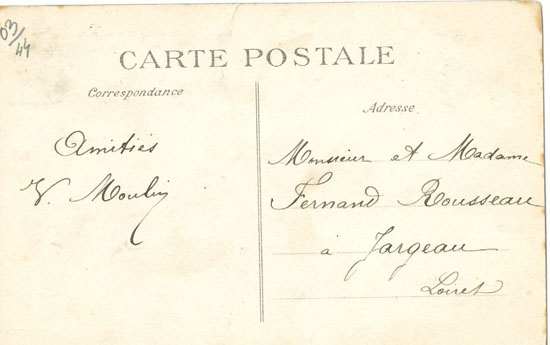 03/44
CARTE POSTALE
Correspondance
Amitiés
V. Moulin
Adresse
Monsieur et Madame
Fernand Rousseau
à Jargeau
Loiret